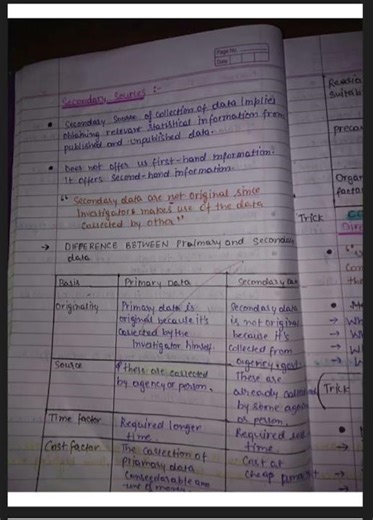 Page No.
Date
Secondary Sources :-
Secondary source of collection of data implies
obtaining relevant statistical information from
published and unpublished data.
Does not offer us first-hand information.
It offers second-hand information.
"Secondary data are not original since
Investigators makes use of the data
collected by other"
→ DIFFERENCE BETWEEN Praimary and secondary
data
Basis Primary Data Secondary Da
Originality Primary data is Secondary data
original because it's is not original
collected by the because it's
Investigator himself. collected from
agency
Source These are collected These are
by agency or person. already
by some
or person.
Time factor Required longer Required
time. time.
Cost factor The collection of Cost at
Primary data cheap
Reaso
Suitab
precau
Organ
factor
Trick
Trick